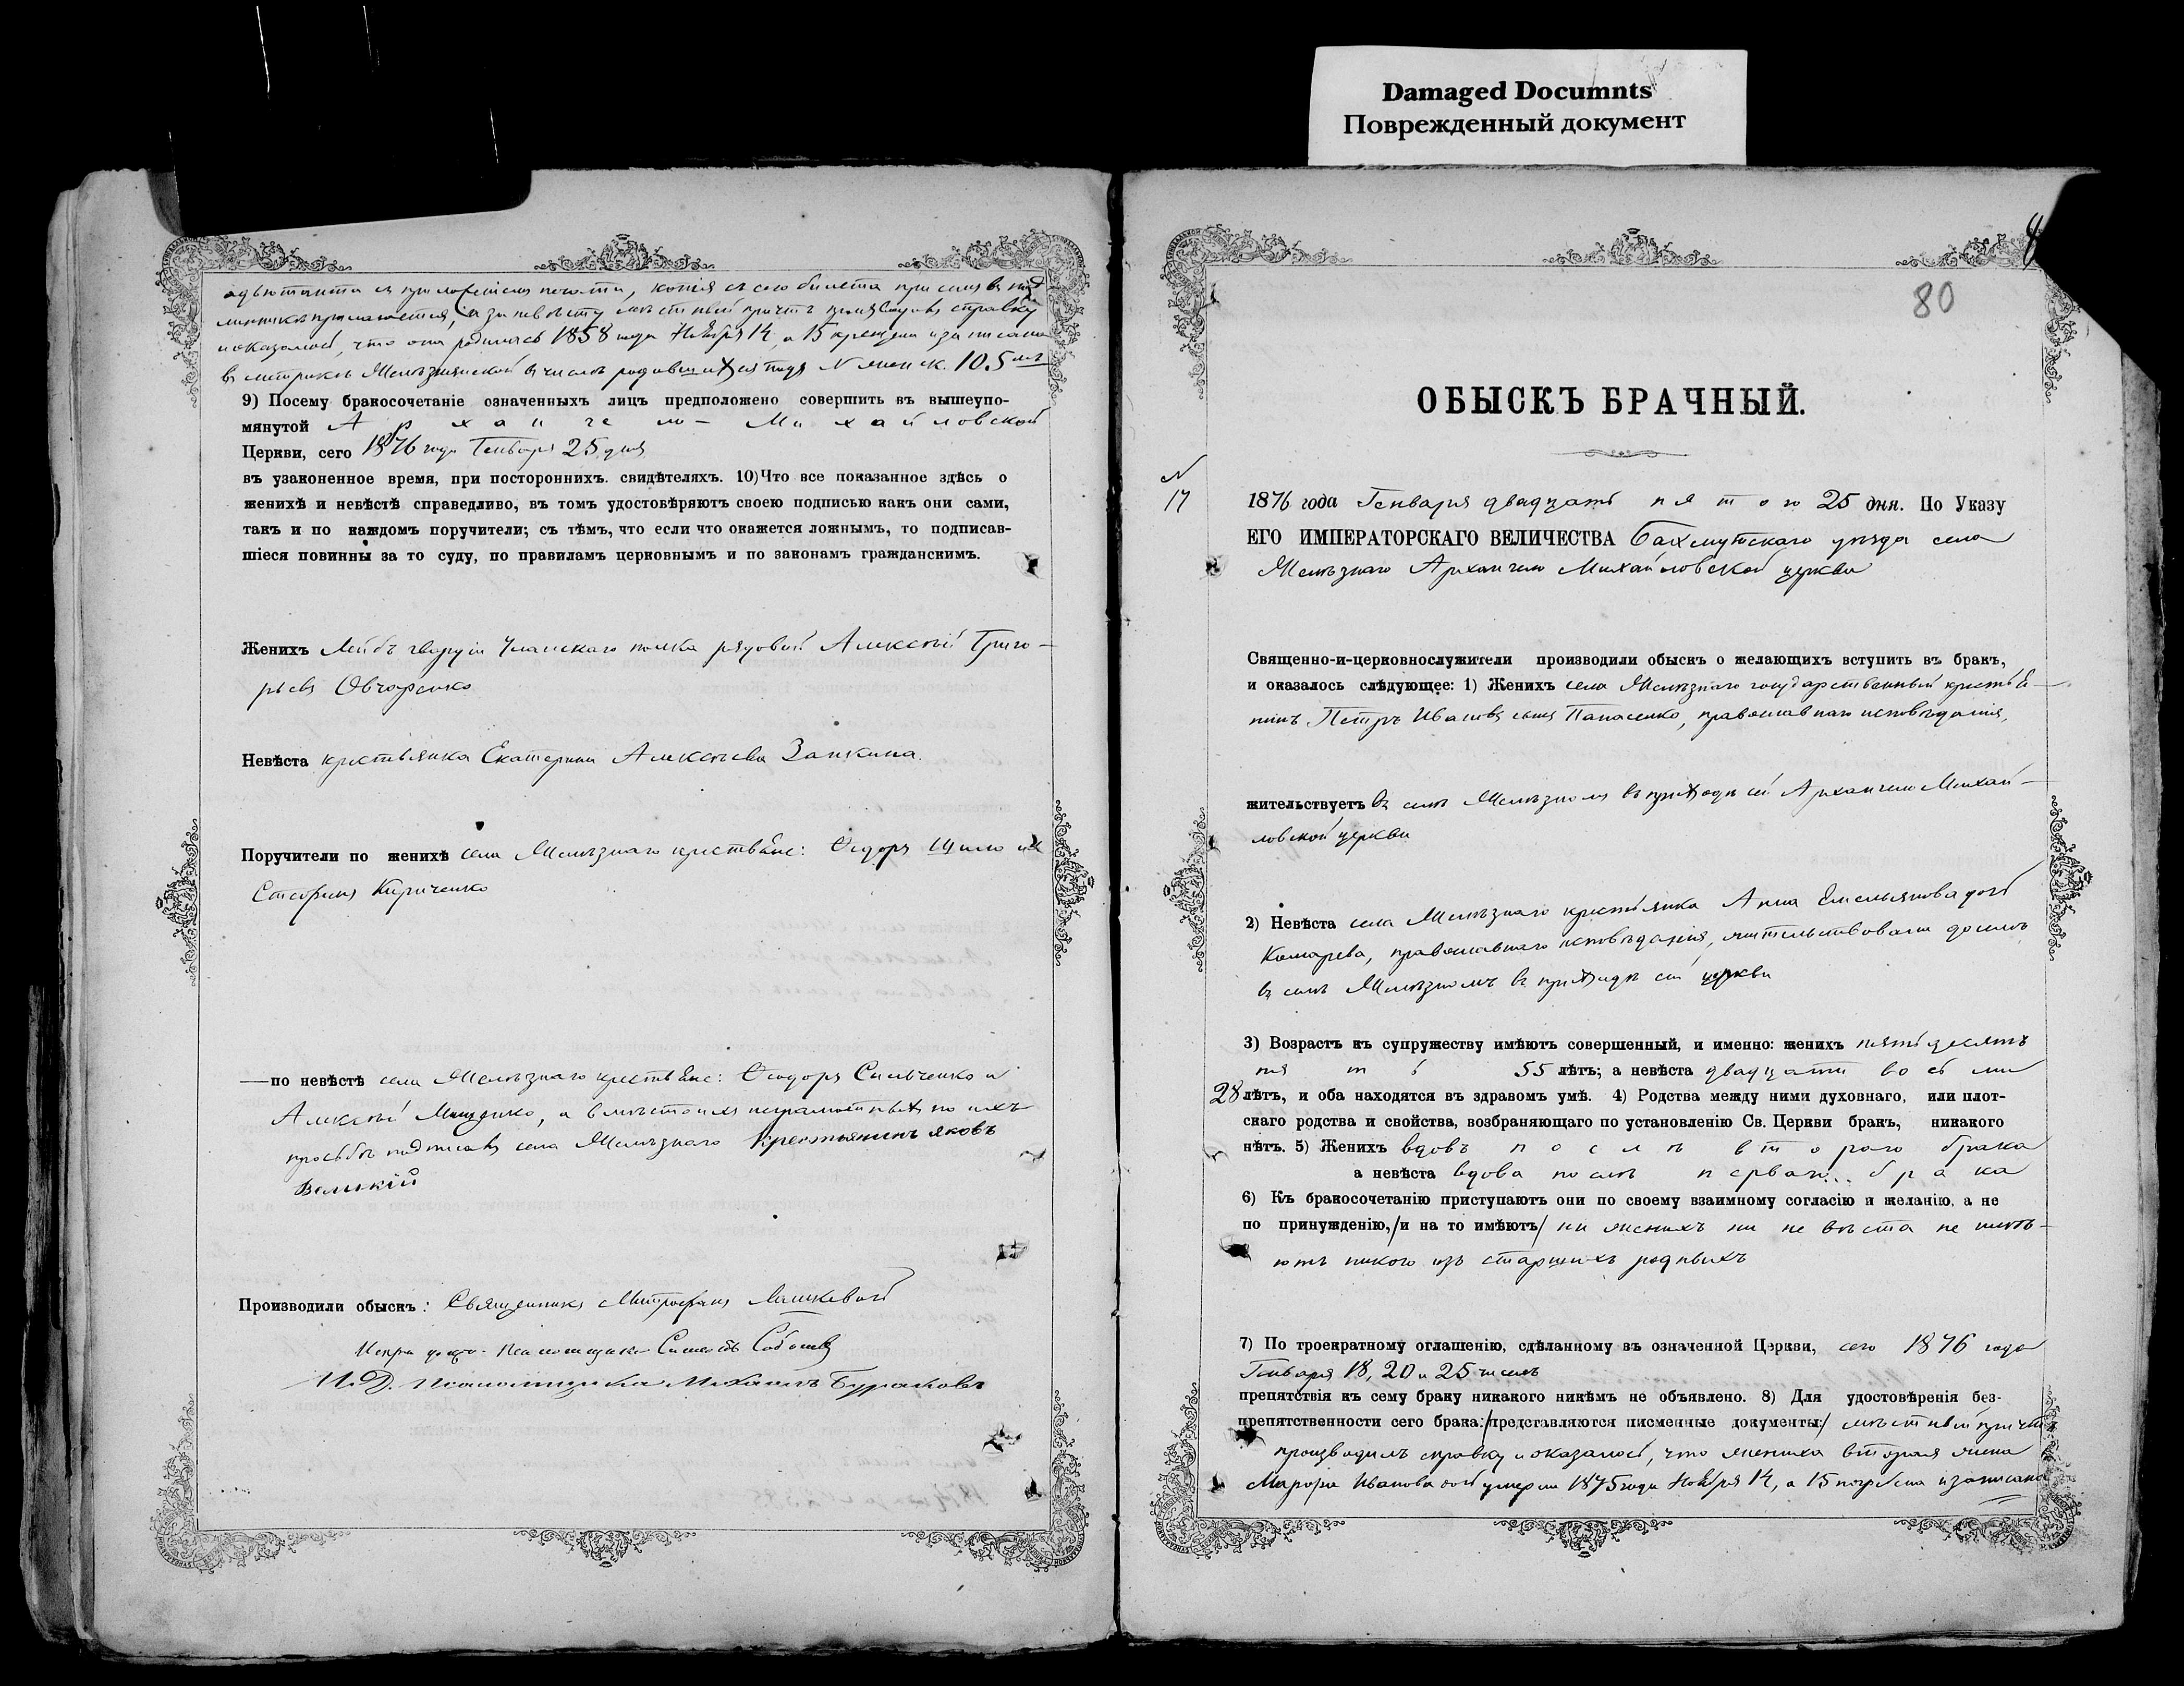 Damaged Documnts
Поврежденный документ
адъютанта съ приложенiемъ печати, копiя съ сего билета при семъ въ под
линникѣ прилагается, а за невѣсту мѣстный причтъ произвелъ справку
и оказалось, что она родилась 1858 года Ноября 14, а 15 крещена и записана
въ метрикѣ Желѣзнянской въ числѣ родившихся подъ N женск. 105мъ
9) Посему бракосочетаніе означенныхъ лицъ предположено совершить въ вышеупо-
мянутой Архангело-Михайловской
Церкви, сего 1876 года Генваря 25 дня
въ узаконенное время, при постороннихъ. свидѣтеляхъ. 10) Что все показанное здѣсь о
женихѣ и невѣстѣ справедливо, въ томъ удостовѣряютъ своею подписью какъ они сами,
такъ и по каждомъ поручители; съ тѣмъ, что если что окажется ложнымъ, то подписав-
шіеся повинны за то суду, по правиламъ церковнымъ и по законамъ гражданскимъ.
Женихъ Лейбъ гвардіи Уланскаго полка рядовой Алексѣй Григо-
рьевъ Овчаренко
Невѣста крестьянка Екатерина Алексѣева Заикина.
Поручители по женихѣ села Желѣзнаго крестьяне: Ѳедоръ Шило и
Стефанъ Кириченко
—по невѣстѣ села Желѣзнаго крестьяне: Ѳеодоръ Сильченко и
Алексѣй Мищенко, а вмѣсто ихъ неграмотныхъ по ихъ
просьбѣ подписалъ села Желѣзнаго Крестьянинъ Яковъ
Великій
Производили обыскъ: Священникъ Митрофанъ Лашкевичъ
Псаломщикъ
И. Д. Псаломщика Михаилъ Бураковъ
80
ОБЫСКЪ БРАЧНЫЙ.
N
17
1876 года Генваря двадцать пятого 25 дня. По Указу
ЕГО ИМПЕРАТОРСКАГО ВЕЛИЧЕСТВА Бахмутскаго уѣзда села
Желѣзнаго Архангело Михайловской церкви
Священно-и-церковнослужители производили обыскъ о желающихъ вступить въ бракъ,
и оказалось слѣдующее: 1) Женихъ села Желѣзнаго государственный крестья-
нинъ Петръ Ивановъ сынъ Панасенко, православнаго исповѣданія,
жительствуетъ въ селѣ Желѣзномъ въ приходѣ сей Архангело Михай-
ловской церкви
2) Невѣста села Желѣзнаго крестьянка Анна Емельянова дочь
Комарева, православнаго исповѣданія, жительствовала доселѣ
въ селѣ Желѣзномъ въ приходѣ сей церкви
3) Возрастъ къ супружеству имѣютъ совершенный, и именно: женихъ пятьдесятъ
пять 55 лѣтъ; а невѣста двадцати восьми
28 лѣтъ, и оба находятся въ здравомъ умѣ. 4) Родства между ними духовнаго, или плот-
скаго родства и свойства, возбраняющаго по установленію Св. Церкви бракъ, никакого
нѣтъ. 5) Женихъ вдовъ послѣ второго брака
а невѣста вдова послѣ перваго брака
6) Къ бракосочетанію приступаютъ они по своему взаимному согласію и желанію, а не
по принужденію, /и на то имѣютъ/ ни женихъ ни невѣста не имѣ-
ютъ никого изъ старшихъ родныхъ
7) По троекратному оглашенію, сдѣланному въ означенной Церкви, сего 1876 года
Генваря 18, 20 и 25 числъ
препятствія къ сему браку никакого никѣмъ не объявлено. 8) Для удостовѣренія без-
препятственности сего брака: /представляются писменные документы:/ мѣстный причтъ
производилъ справку и оказалось, что жениха вторая жена
Марфа Иванова дочь умерла 1875 года Ноября 14, а 15 погребена и записана